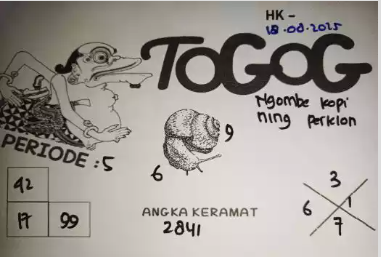 HK -
18-08-2025
TOGOG
Ngombe kopi
ning periklon
PERIODE : 5
9
6
42
17 99
ANGKA KERAMAT
2841
3
6 1
7